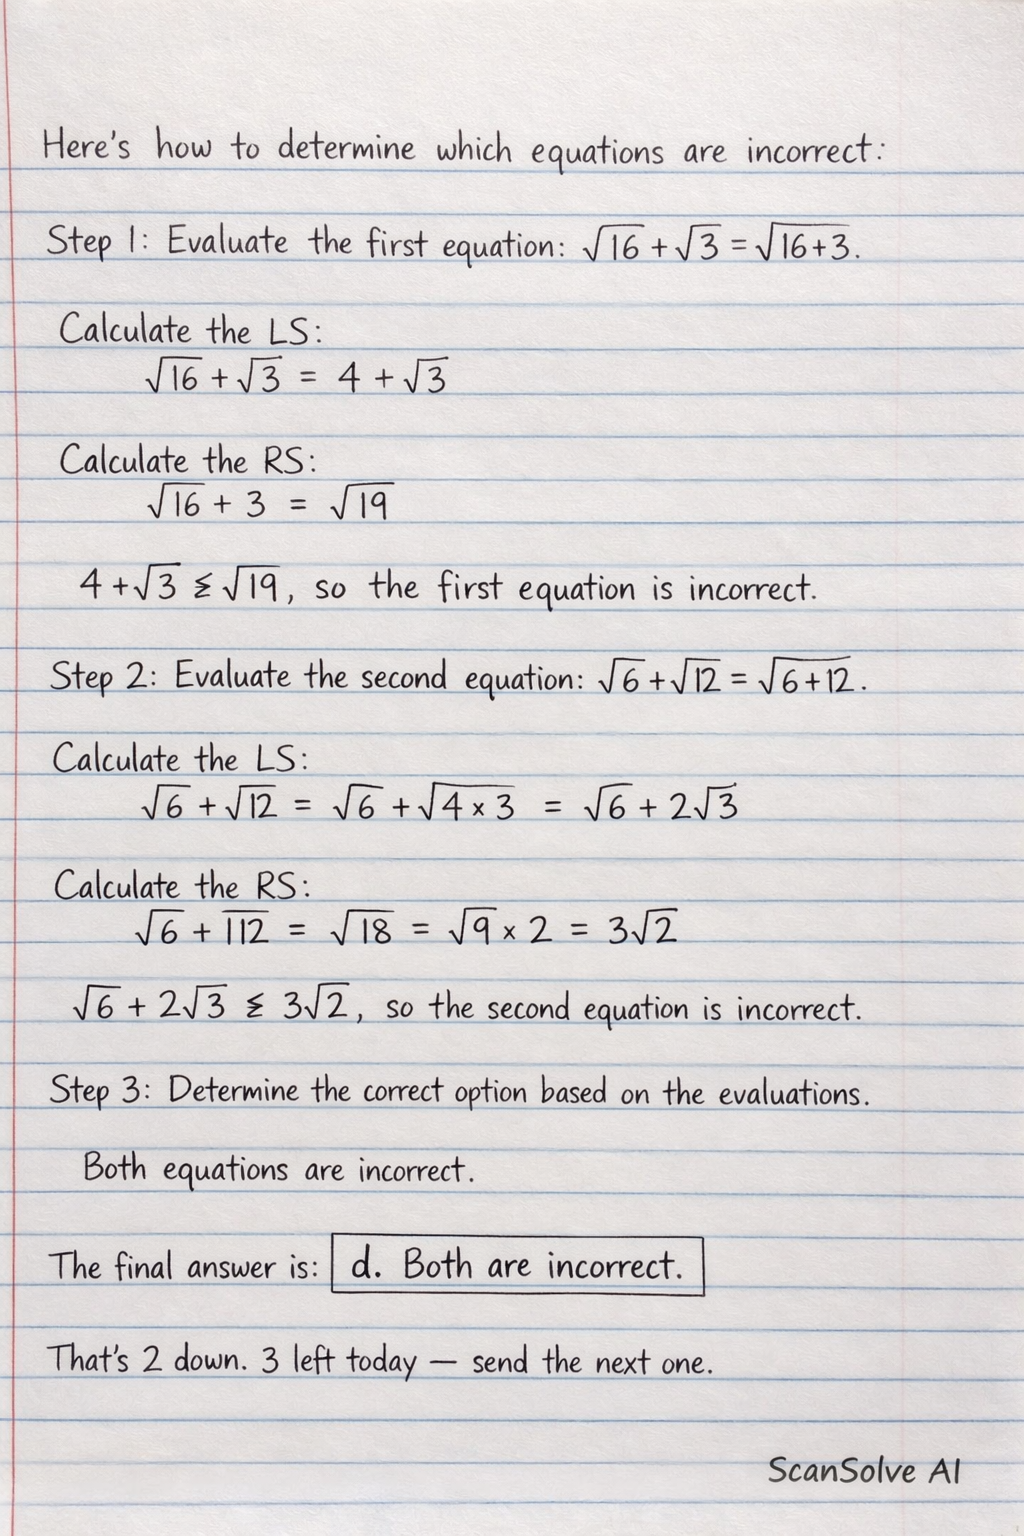 Here's how to determine which equations are incorrect:
Step 1: Evaluate the first equation: √16 + √3 = √16+3.
Calculate the LS:
√16 + √3 = 4 + √3
Calculate the RS:
√16 + 3 = √19
4 + √3 ≨ √19, so the first equation is incorrect.
Step 2: Evaluate the second equation: √6 + √12 = √6+12.
Calculate the LS:
√6 + √12 = √6 + √4 × 3 = √6 + 2√3
Calculate the RS:
√6 + 112 = √18 = √9 × 2 = 3√2
√6 + 2√3 ≨ 3√2, so the second equation is incorrect.
Step 3: Determine the correct option based on the evaluations.
Both equations are incorrect.
The final answer is: d. Both are incorrect.
That's 2 down. 3 left today — send the next one.
ScanSolve AI